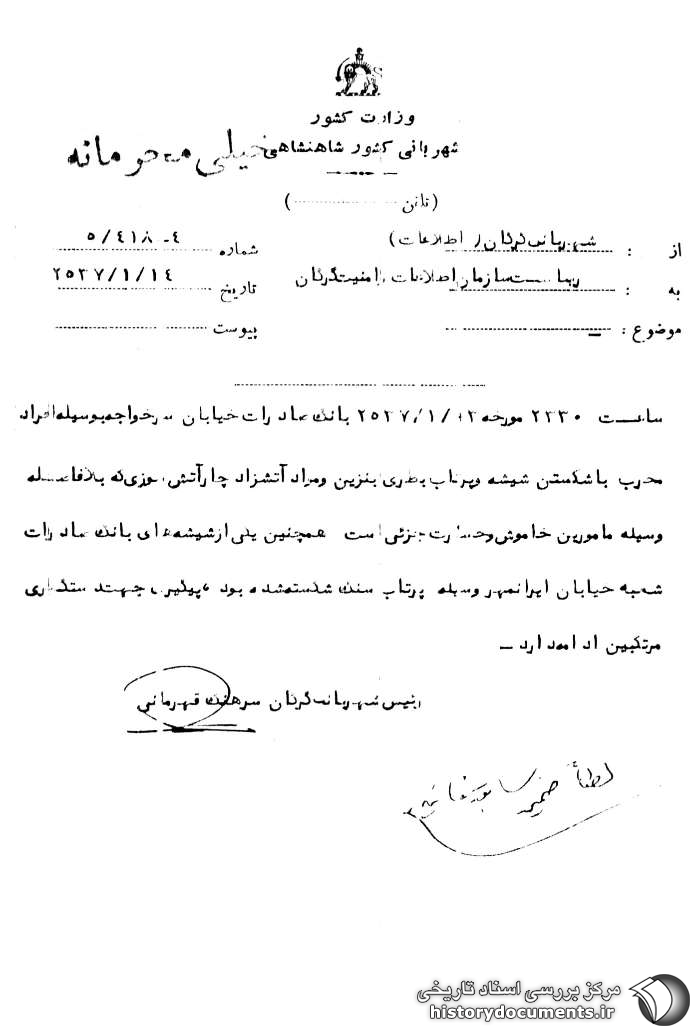 وزارت کشور
شهربانی کشور شاهنشاهی
خیلی محرمانه
(تلفن ................)
از : شهربانی گرگان ( اطلاعات )
شماره ۵/٤۱۸-٤
به : ریاست سازمان اطلاعات و امنیت گرگان
تاریخ ۲۵۳۷/۱/۱٤
موضوع : –
پیوست
ساعت ۲۳۳۰ مورخه ۲۵۳۷/۱/۱۳ بانک صادرات خیابان سرخواجه بوسیله افراد
مخرب با شکستن شیشه و پرتاب بطری بنزین و مواد آتشزا دچار آتش سوزی که بلافاصله
وسیله مامورین خاموش و خسارت جزئی است همچنین یکی از شیشه های بانک صادرات
شعبه خیابان ایرانمهر وسیله پرتاب سنگ شکسته شده بود ، پیگیری جهت دستگیری
مرتکبین ادامه دارد –
رئیس شهربانی گرگان سرهنگ قهرمانی
لطفاً ضمیمه سابقه
مرکز بررسی اسناد تاریخی
historydocuments.ir